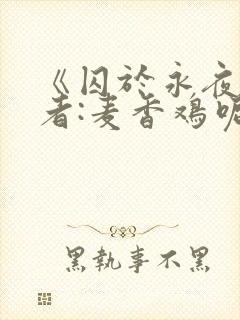 《囚於永夜
者:麦香鸡呢
黑執事不黑